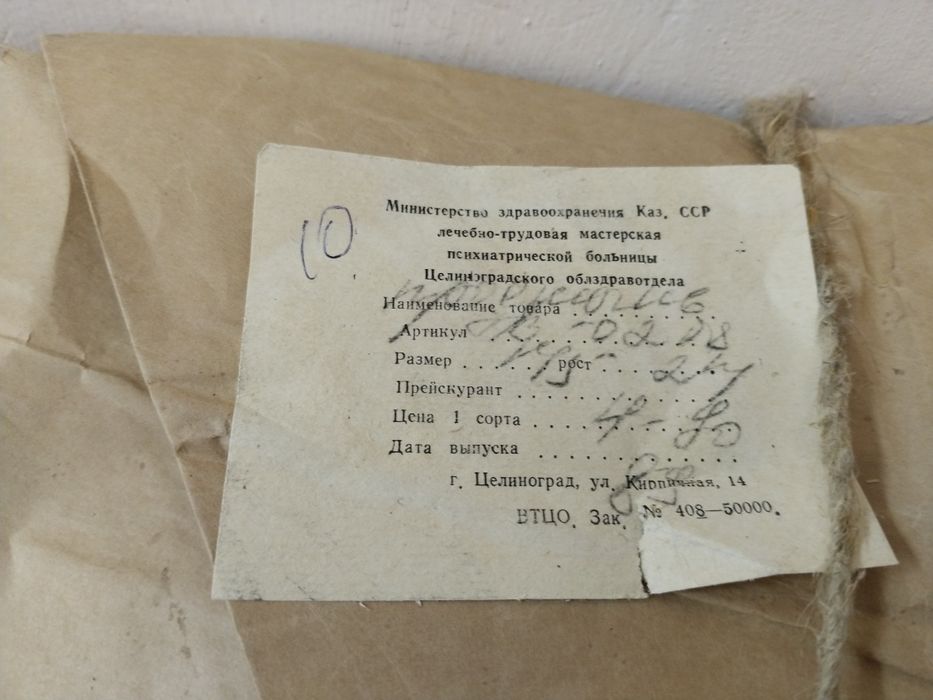 10
Министерство здравоохранения Каз. ССР
лечебно-трудовая мастерская
психиатрической больницы
Целиноградского облздравотдела
Наименование товара
Артикул
Размер рост
Прейскурант
Цена 1 сорта
Дата выпуска
г. Целиноград, ул. Кирпичная, 14
ВТЦО. Зак. № 408—50000.